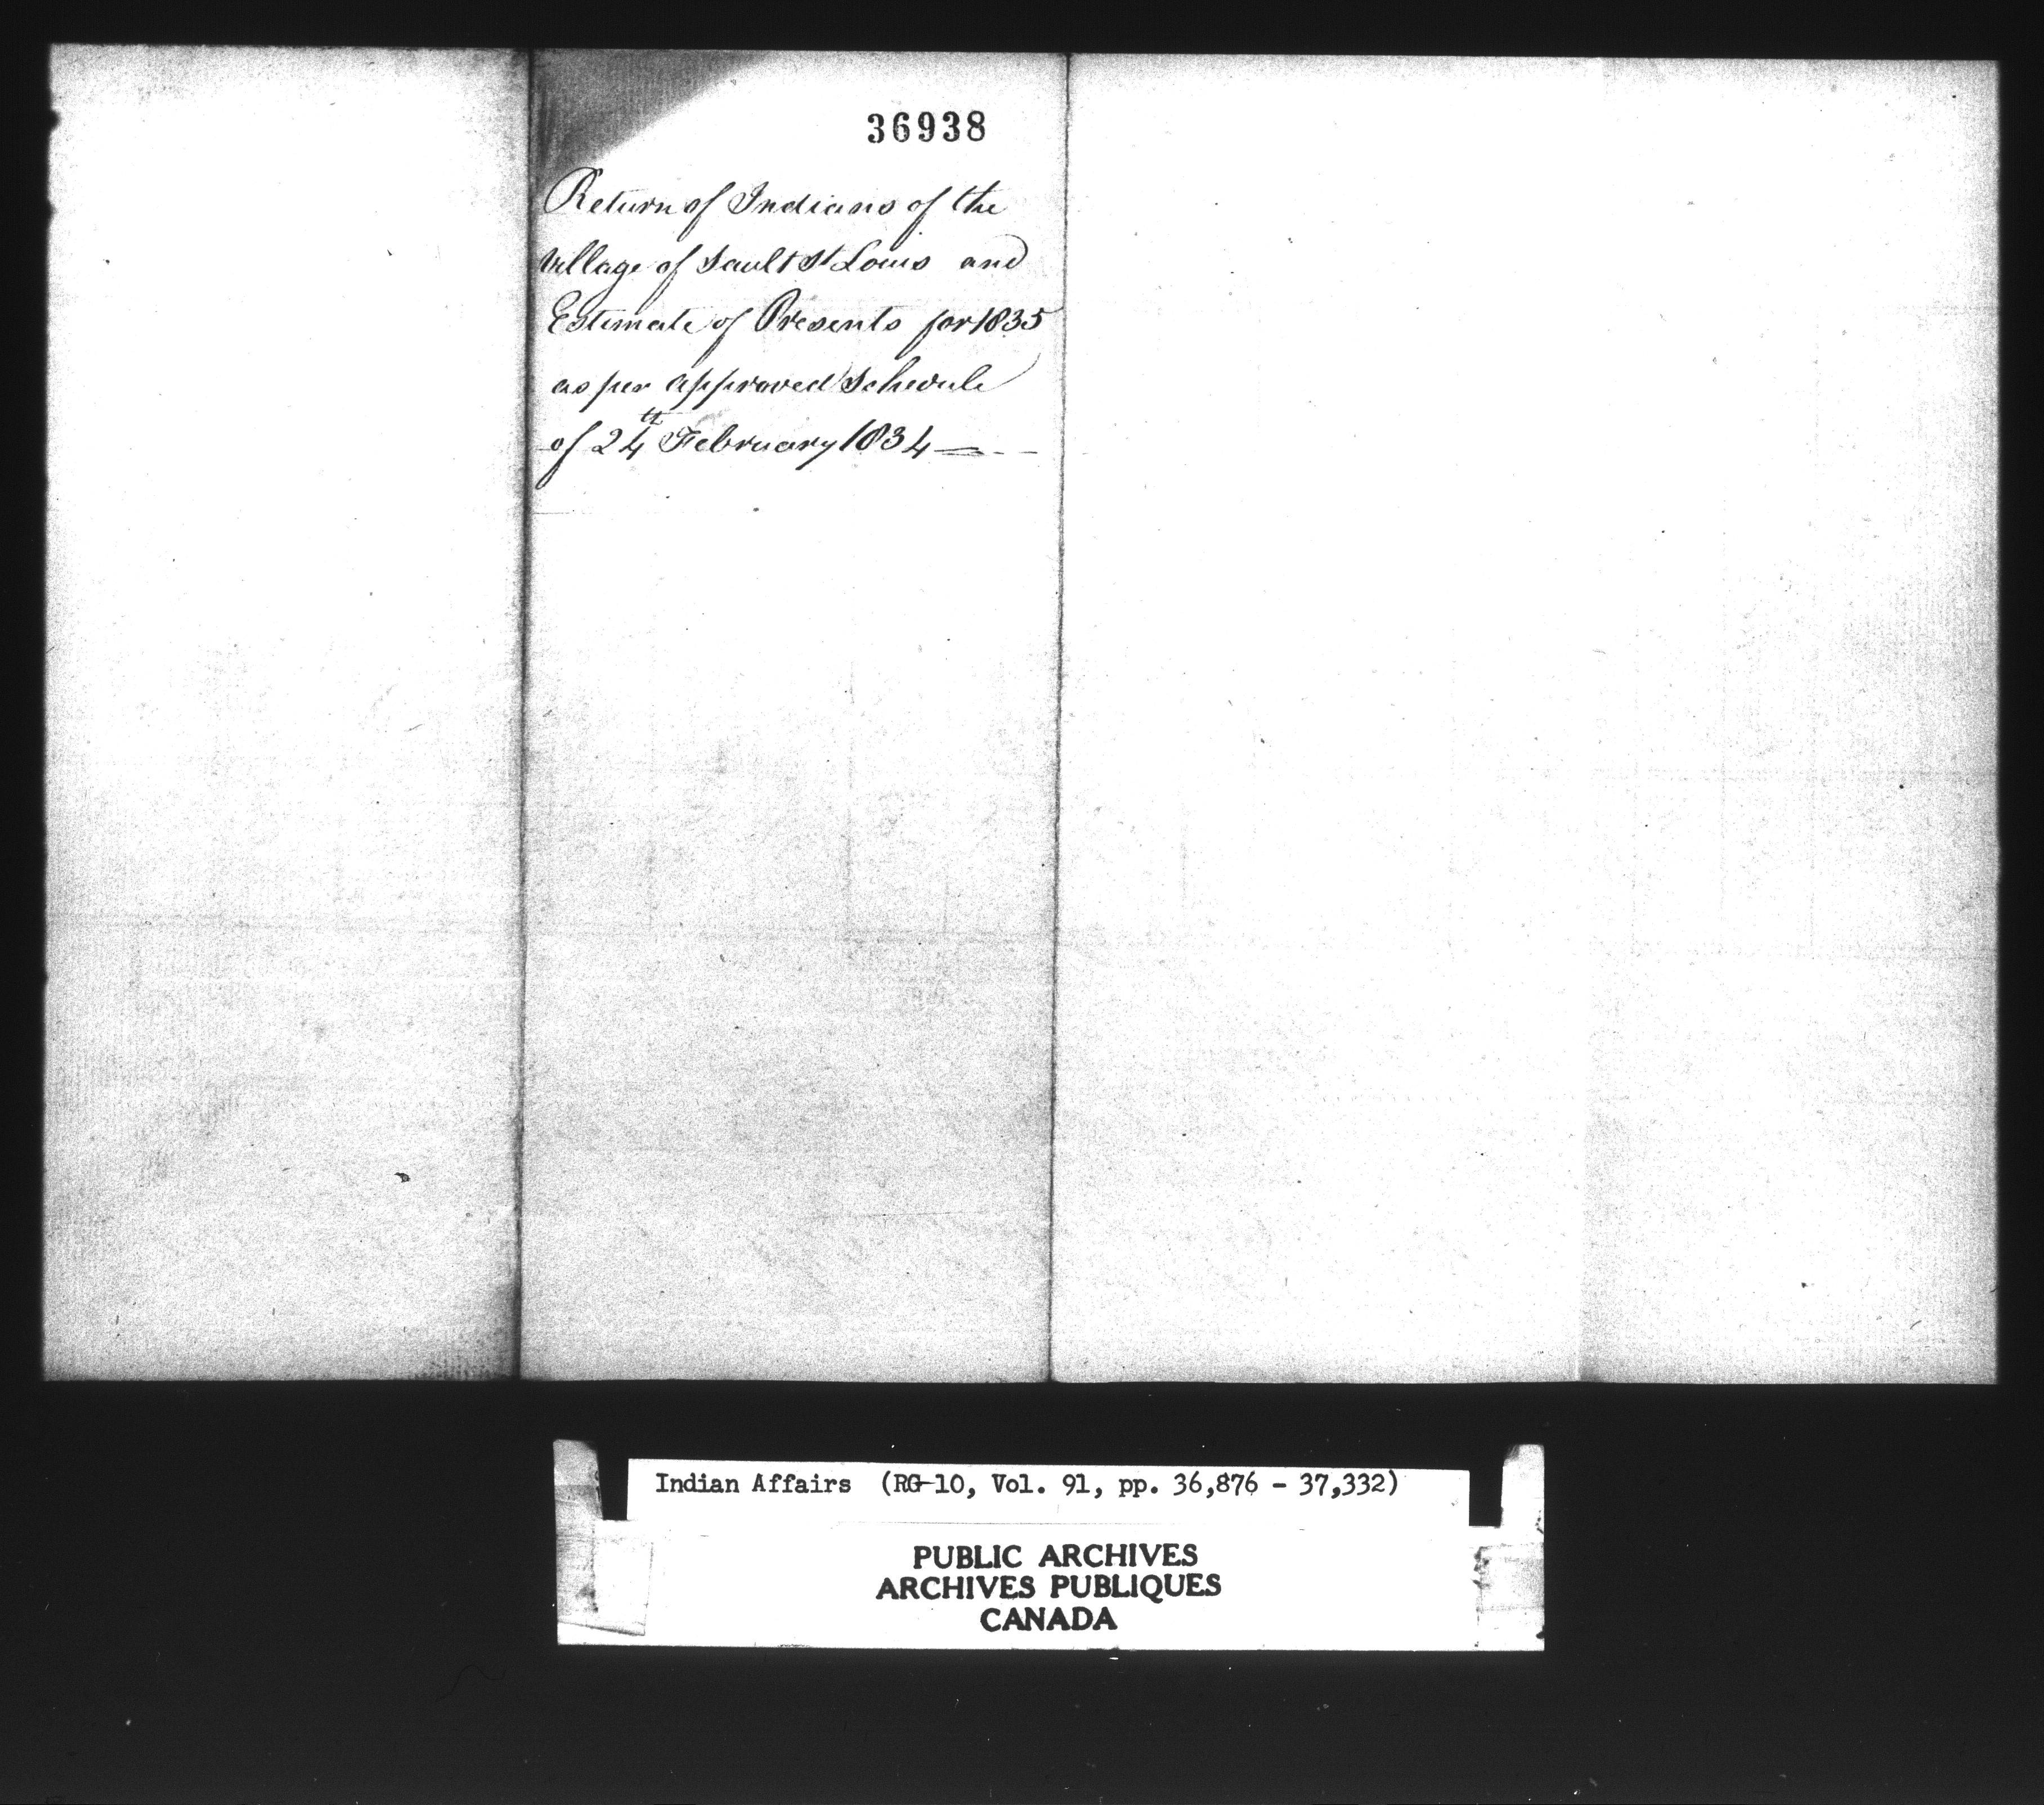 36938
Return of Indians of the
Village of Sault St Louis and
Estimate of Presents for 1835
as per approved Schedule
of 24th February 1834
Indian Affairs (RG-10, Vol. 91, pp. 36,876 - 37,332)
PUBLIC ARCHIVES
ARCHIVES PUBLIQUES
CANADA